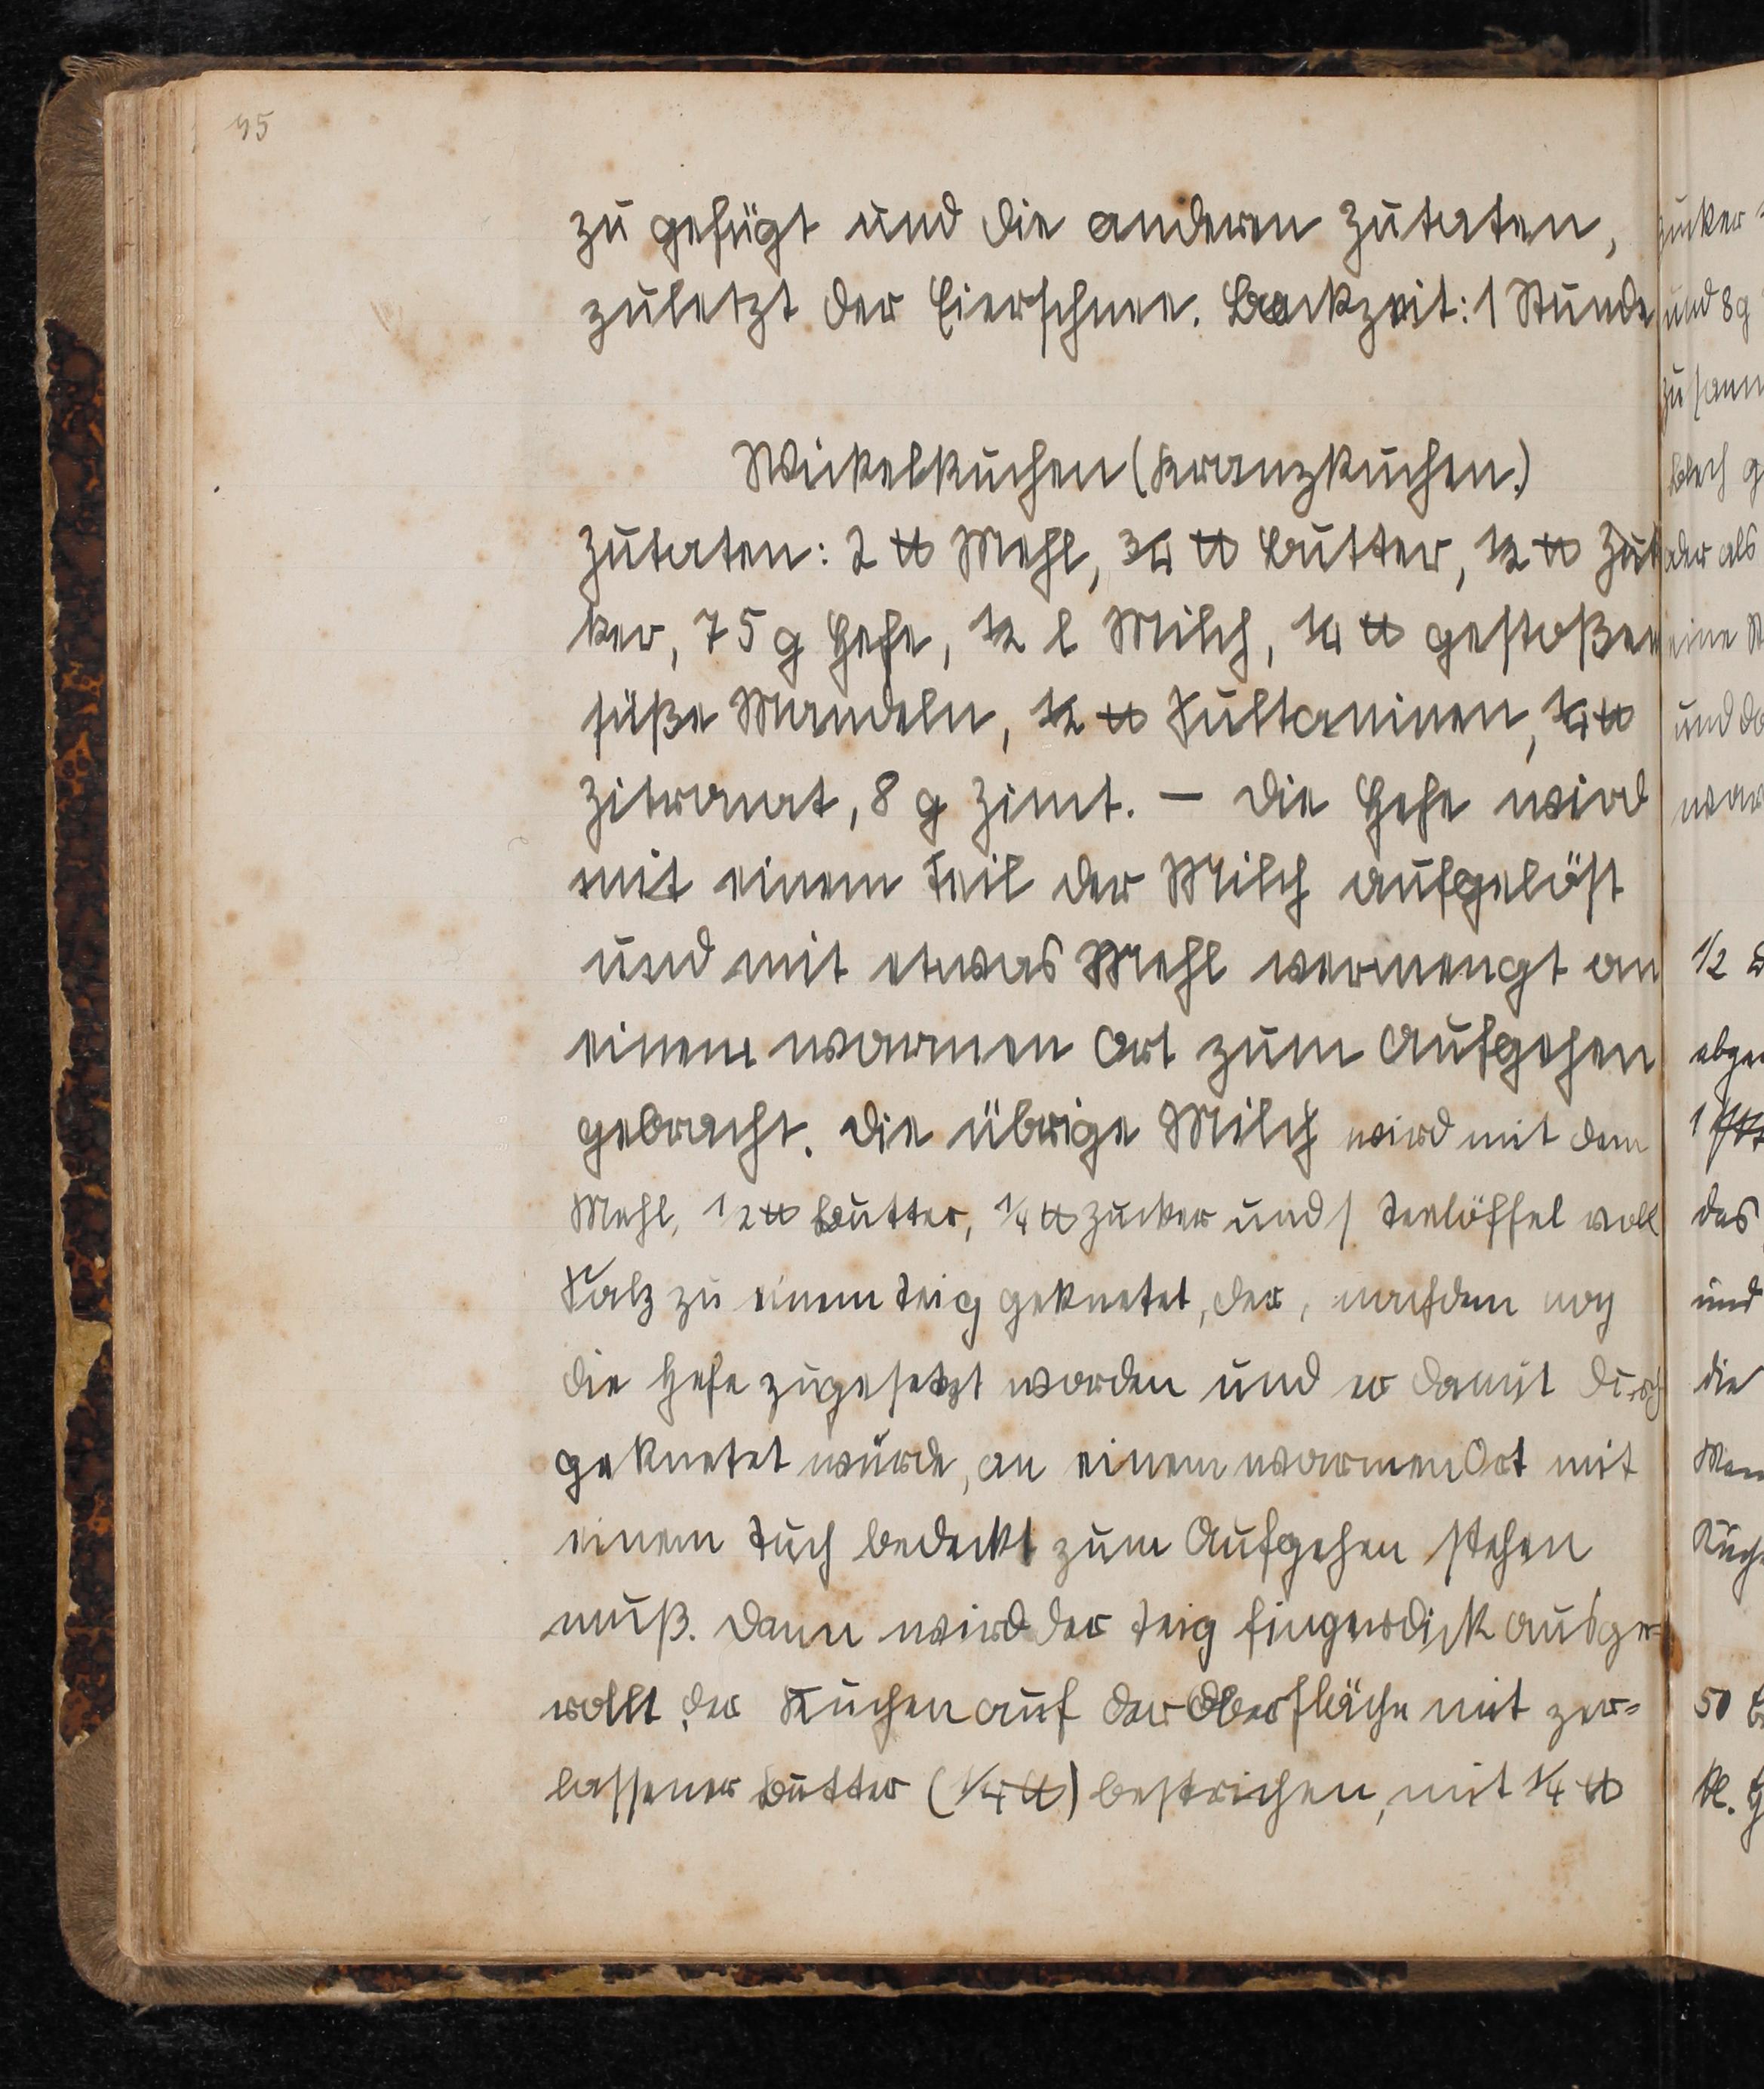 95
zu gefügt und die anderen Zutaten,
zuletzt der Eierschnee. Backzeit: 1 Stunde
Wickelkuchen (Kranzkuchen.)
Zutaten: 2 ℔ Mehl, 3/4 ℔ Butter, 1/2 ℔ Zuk
ker, 75 g Hefe, 1/2 l Milch, 1/4 ℔ gestoßen
süße Mandeln, 1/2 ℔ Sultaninen, 1/4 ℔
Zitronat, 8 g Zimt. — Die Hefe wird
mit einem Teil der Milch aufgelöst
und mit etwas Mehl vermengt an
einem warmen Ort zum Aufgehen
gebracht. Die übrige Milch wird mit dem
Mehl, 1/2 ℔ Butter, 1/4 ℔ Zucker und 1 Teelöffel voll
Salz zu einem Teig geknetet, der, nachdem noch
die Hefe zugesetzt worden und er damit durch
geknetet wurde, an einem warmen Ort mit
einem Tuch bedeckt zum Aufgehen stehen
muß. Dann wird der Teig fingerdick ausge-
rollt der Kuchen auf der Oberfläche mit zer-
lassener Butter (1/4 ℔) bestrichen, mit 1/4 ℔
zucker
und 8 g
zusamm
blech g
der als
eine
und da
war
1/2
abge
1
das
und
die
Man
Kuche
50
kl.